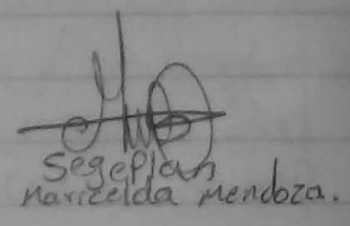 Segeplan
Maricelda Mendoza.